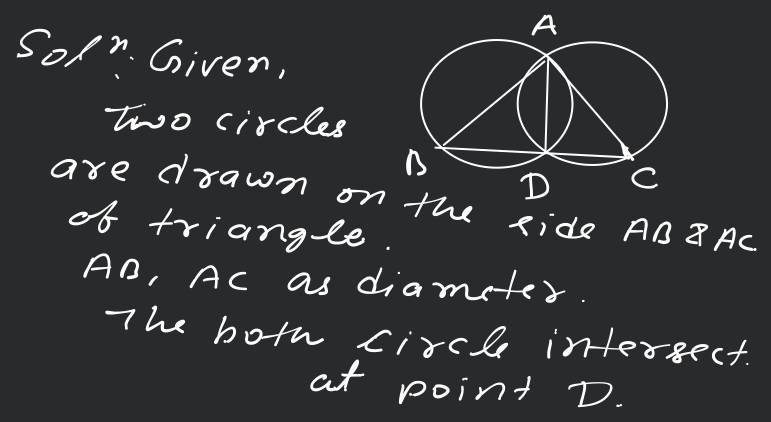 Solⁿ: Given,
Two circles
are drawn on the side AB & AC
of triangle.
AB, AC as diameter.
The both circle intersect.
at point D.
A
B
D
C